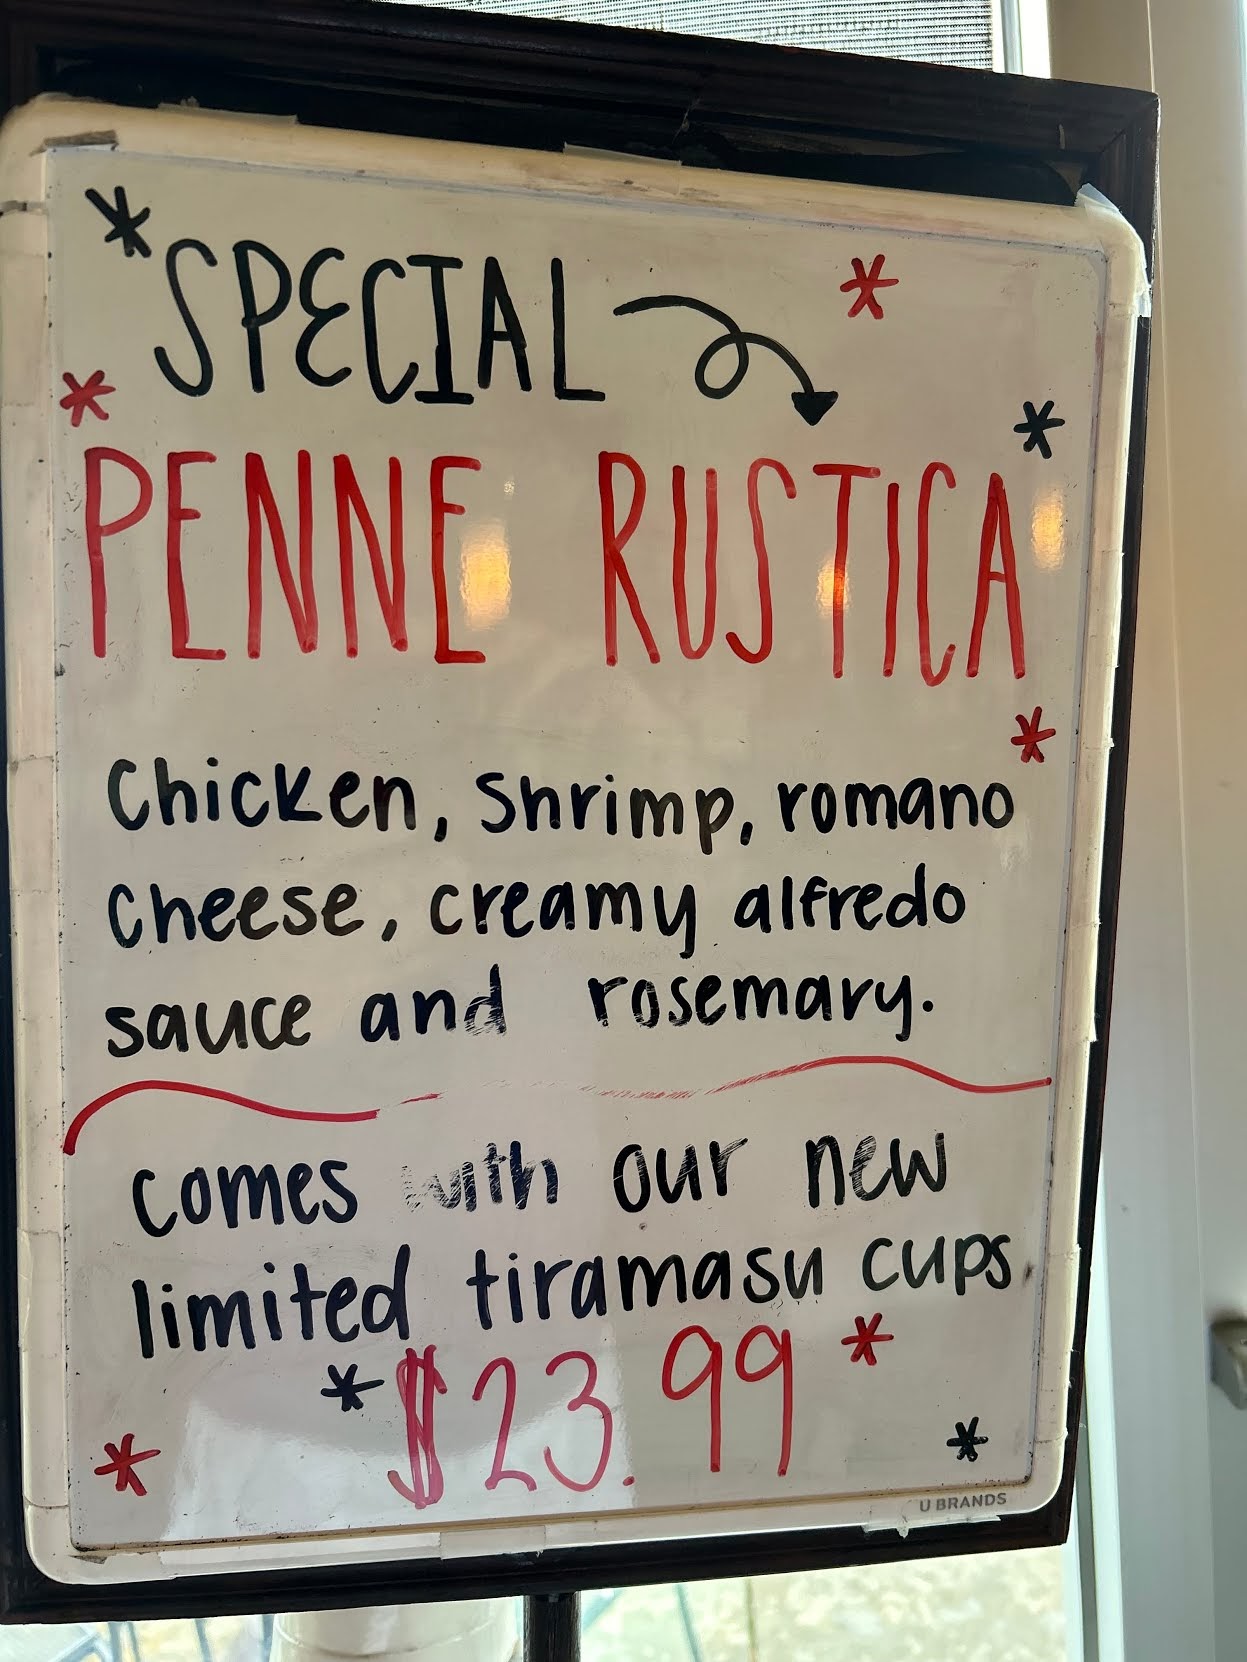 *SPECIAL *
*
*
PENNE RUSTICA
*
Chicken, Shrimp, romano
cheese, creamy alfredo
sauce and rosemary.
comes with our new
limited tiramasu cups
*$23.99 *
* *
U BRANDS